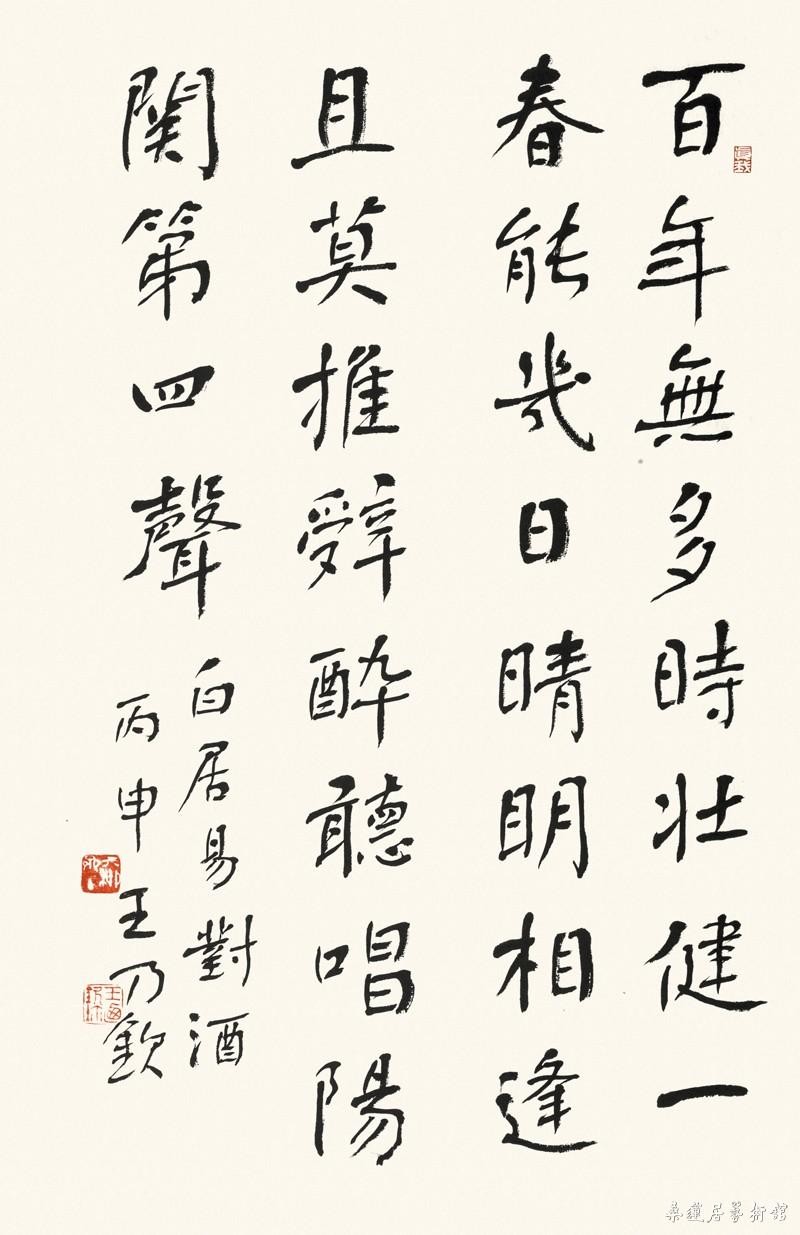 百年無多時壯健一
春能幾日晴明相逢
且莫推辤醉聽唱陽
関第四聲
白居易對酒
丙申王乃欽
桑蓮居藝術館